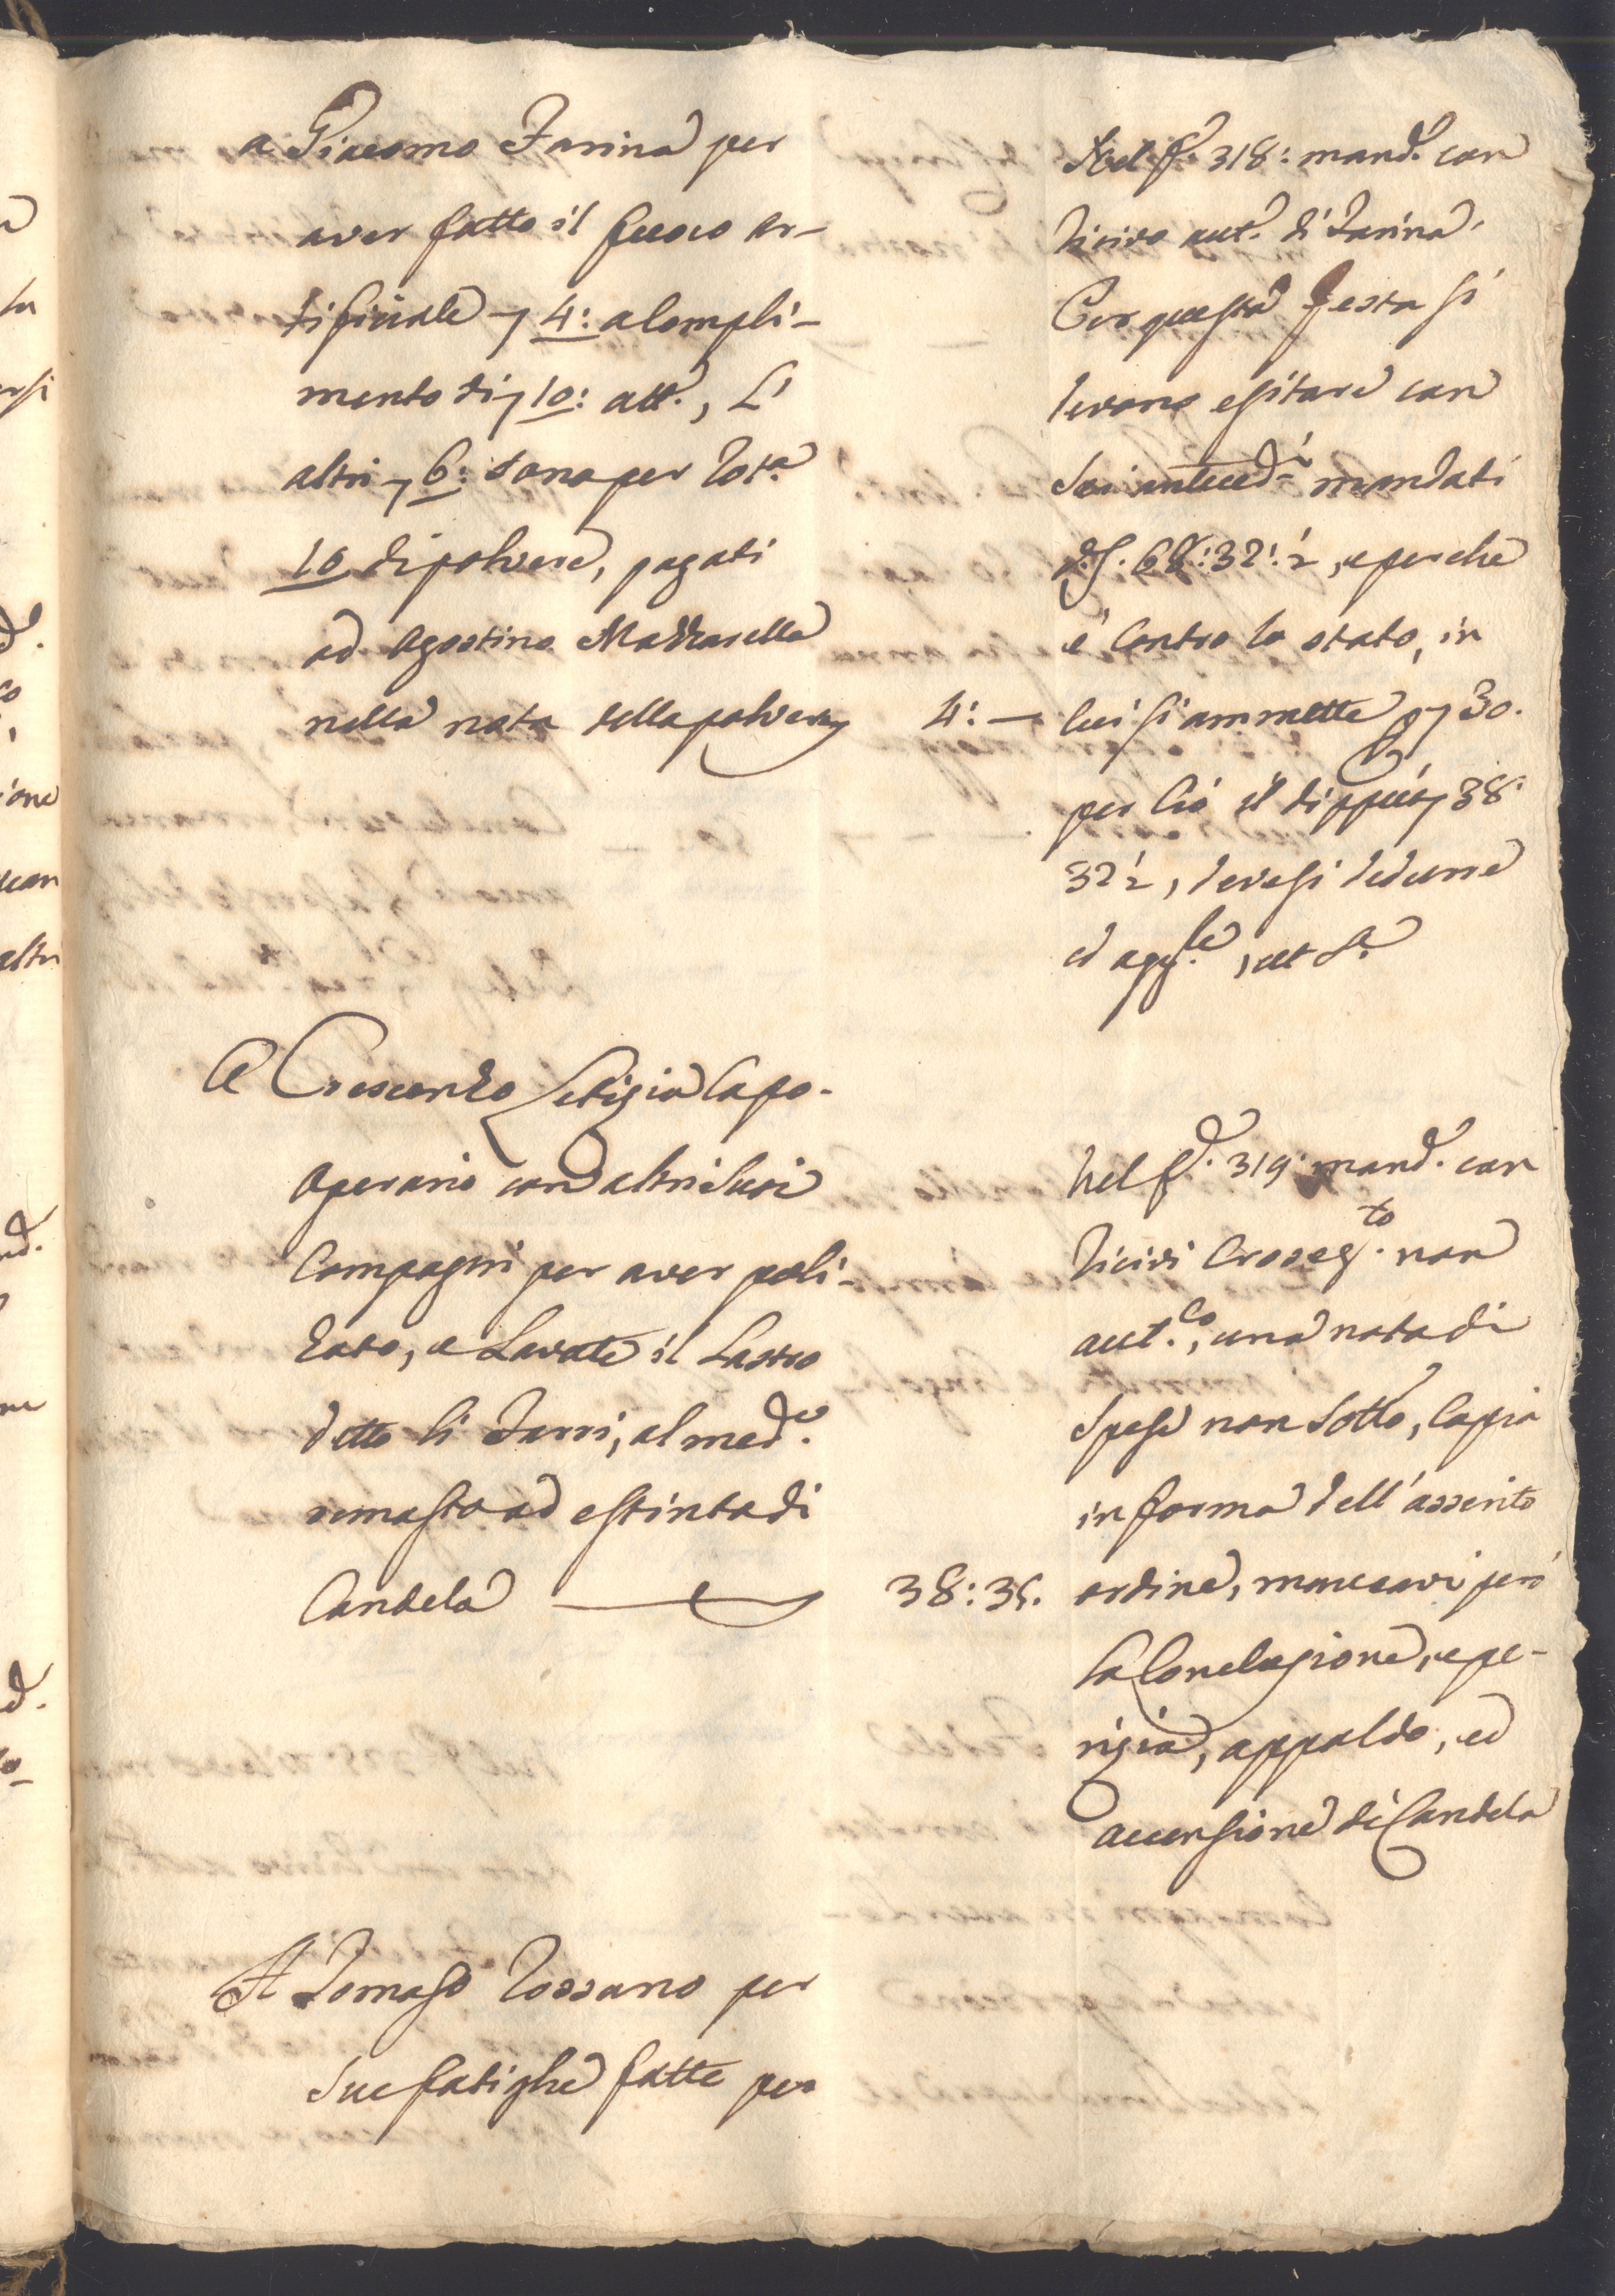 a Giacomo Farina per
aver fatto il fuoco ar-
tificiale 4: a compli-
mento di 10: att.,
altri 6: sono per rot.a
10 di polvere, pagati
ad Agostino Mazzarella
nella nota della polvere
4:—
Nel f.° 318: mand.° con
ricivo aut.° di Farina.
Per questa festa si
devono esitare con
antecedi mandati
68:32:½, e perche
è contro lo stato, in
cui si ammette 30.
per ciò il di più 38:
32½, devesi dedurre
ed ut S.a
A Crescenzo Letizia Capo-
operario con altri suoi
Compagni per aver poli-
zato, e Lavate il Lastro
detto li Torri, al med.o
remasto ad estinta di
Candela
38:35.
Nel f.° 319: mand.° con
ricivi Croseg.to non
aut.co, una nota di
spese non sotto, Copia
in forma dell'asserito
ordine, mancarvi però
la Conclusione, e pe-
rizia, appaldo, ed
accensione di Candela
A Tomaso Rossano per
sue fatighe fatte per